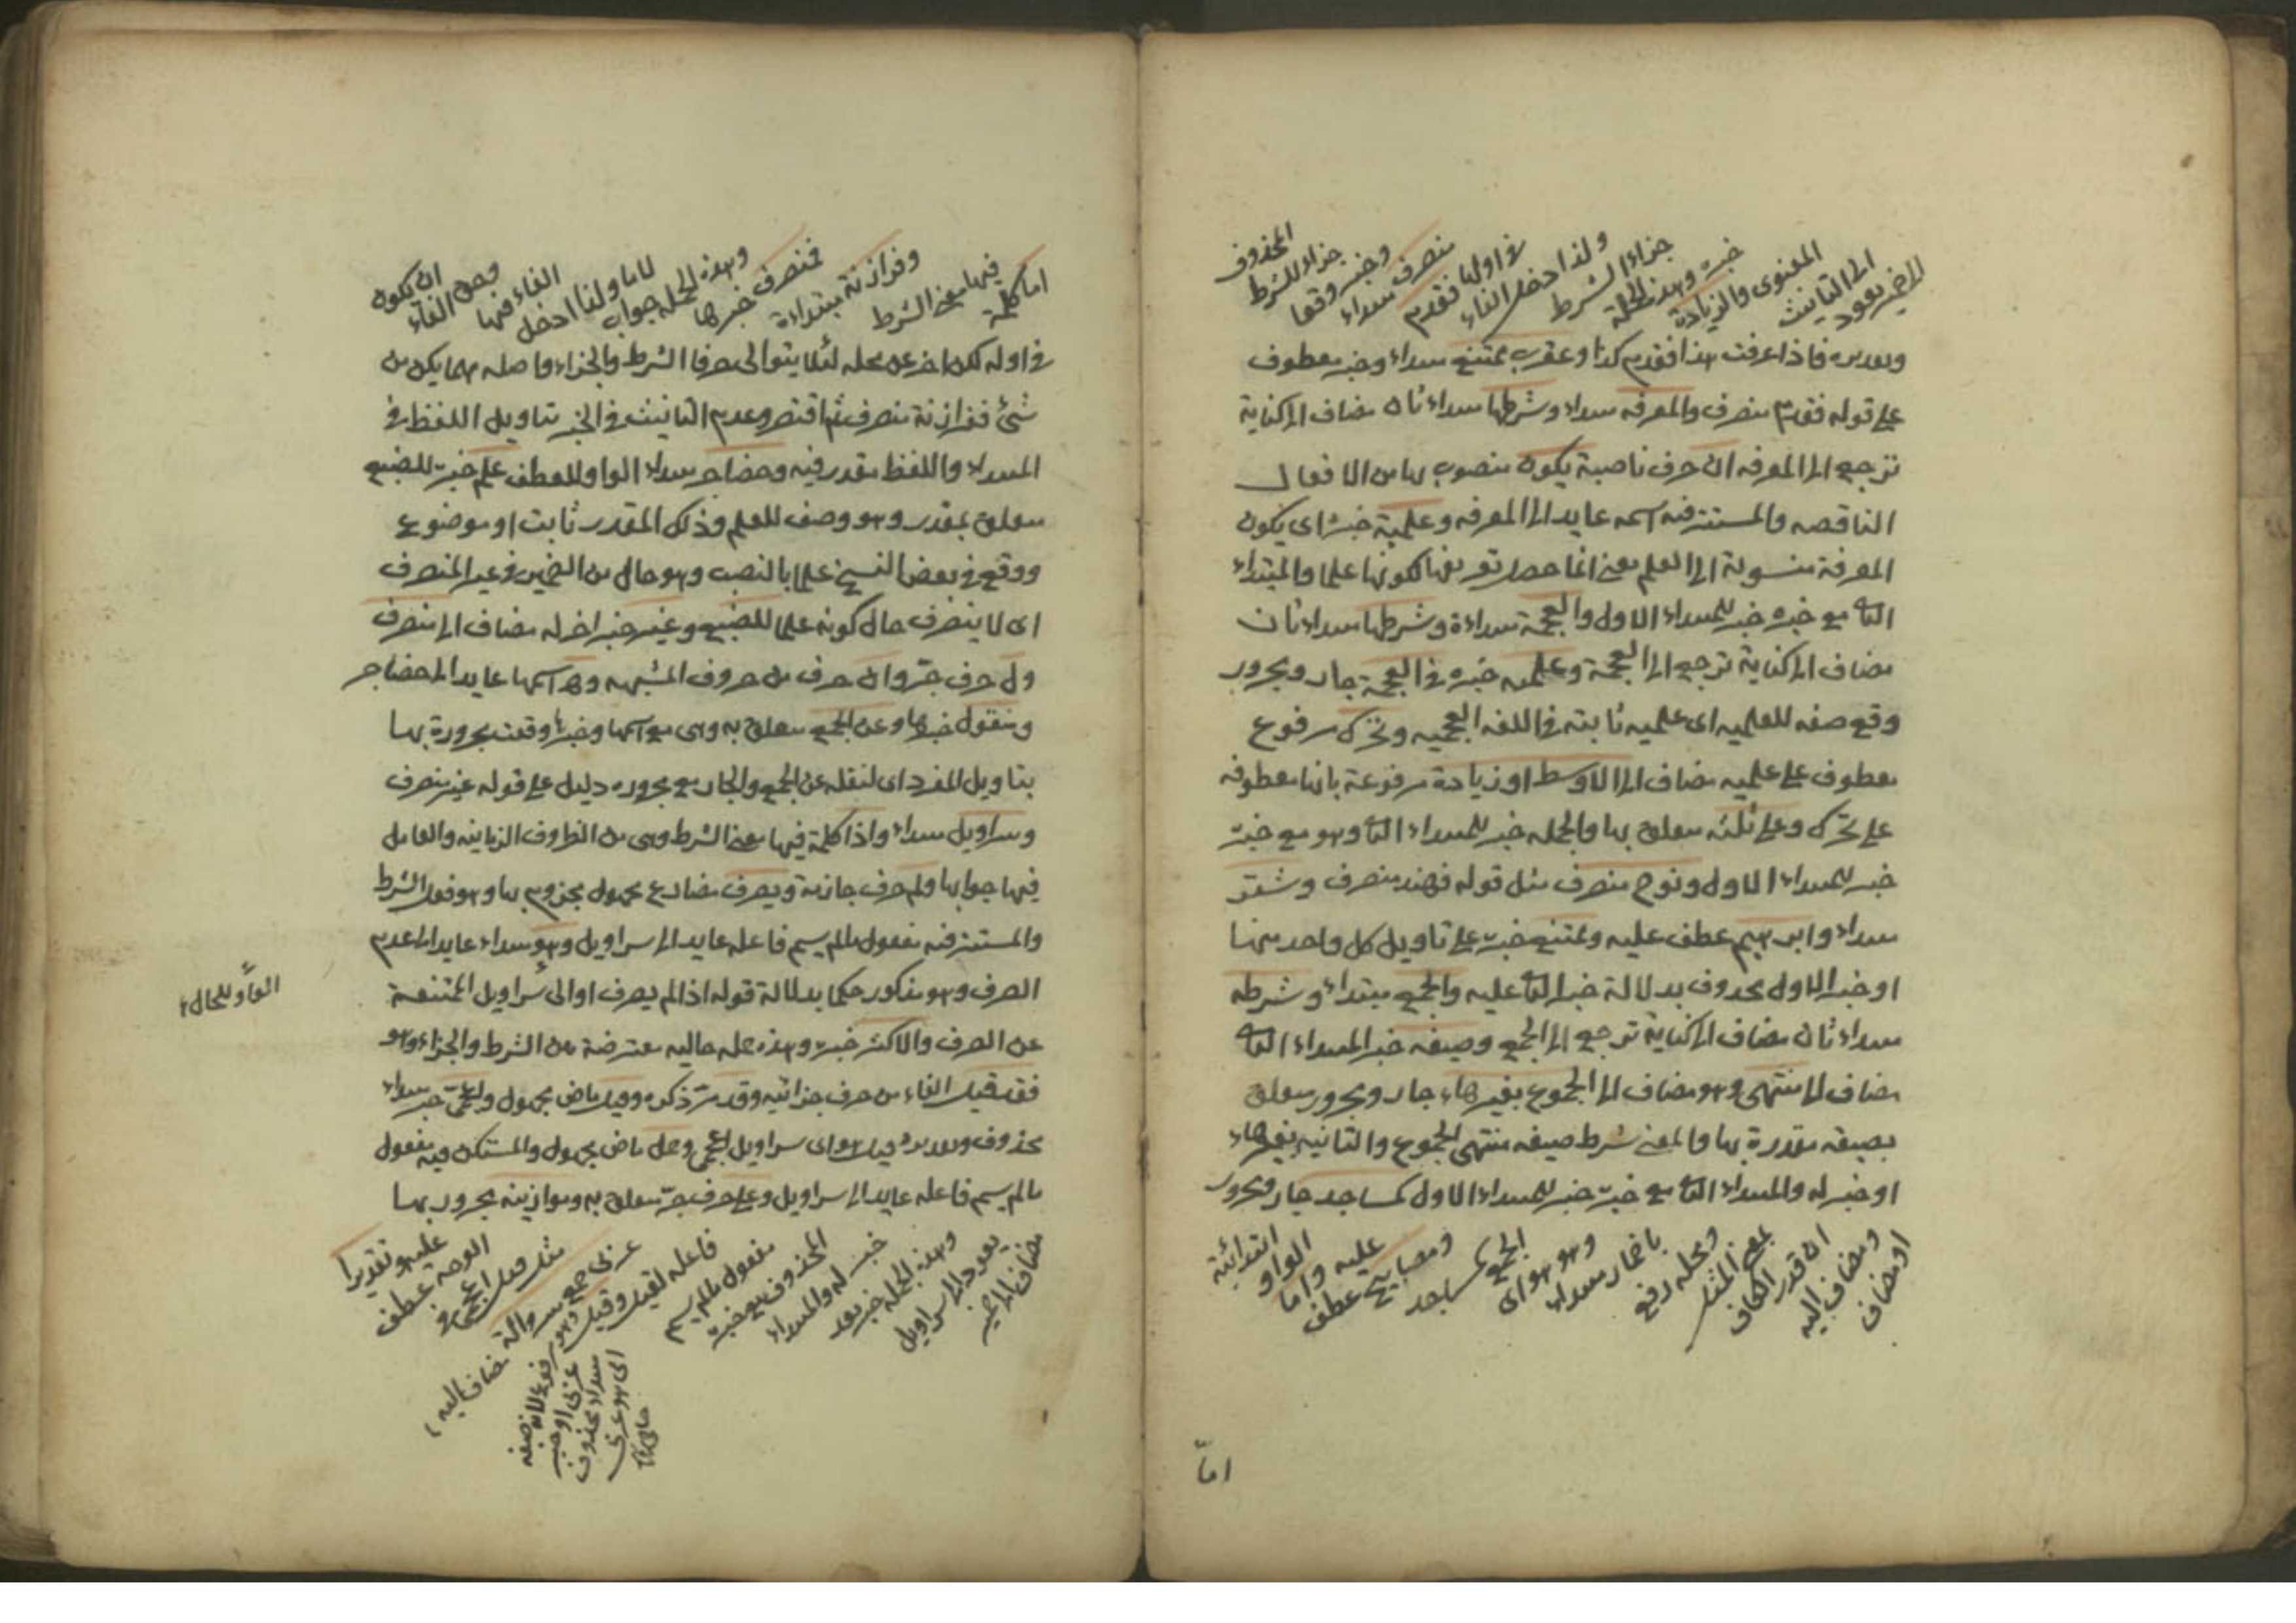 الضمير يعود
الى التانيث
المعنوى والزيادة
خبره وهذه الجملة
جزاء الشرط
ولذا دخل الفاء
فى اولها فقدم
منصرف مبتداء
وخبر وقعا
جزاء للشرط
المحذوف
وتقديره فاذا عرفت هذا فقدم كذا وعقرب ممتنع مبتداء وخبر معطوف
على قوله فقدم منصرف والمعرفه مبتداء وشرطها مبتداء ثان مضاف الى كناية
ترجع الى المعرفه ان حرف ناصبة يكون منصوب بها من الافعال
الناقصه والمستتر فيه اسمه عايد الى المعرفه وعلمية خبره اى يكون
المعرفة منسوبة الى العلم يعنى انما حصل تعريفها لكونها علما والمبتداء
الثانى مع خبره خبر للمبتداء الاول والعجمة مبتداءة وشرطها مبتداء ثان
مضاف الى كناية ترجع الى العجمة وعلميه خبره فى العجمة جار ومجرور
وقع صفه للعلميه اى علميه ثابته فى اللغه العجميه وتحرك مرفوع
معطوف على علميه مضاف الى الاوسط او زيادة مرفوعة بانها معطوفه
على تحرك وعلى ثلثه متعلق بها والجمله خبر للمبتداء الثانى وهو مع خبره
خبر للمبتداء الاول ونوح منصرف مثل قوله فهند منصرف وشتر
مبتداء وابرهيم عطف عليه وممتنع خبره على تاويل كل واحد منهما
او خبر الاول محذوف بدلالة خبر الثانى عليه والجمع مبتداء وشرطه
مبتداء ثان مضاف الى كناية ترجع الى الجمع وصيغه خبر المبتداء الثانى
مضاف الى منتهى وهو مضاف الى الجموع بغير هاء جار ومجرور متعلق
بصيغه مقدرة بها والمعنى شرط صيغه منتهى الجموع والثانيه بغير هاء
او خبر له والمبتداء الثانى مع خبره خبر للمبتداء الاول كمساجد جار ومجرور
او مضاف
ومضاف اليه
ان قدر الكاف
بمعنى المثل
ومحله رفع
باضمار مبتداء
وهو هو اى
الجمع كمساجد
ومصابيح عطف
عليه واما
الواو
ابتدائية
اما
اما كلمة
فيها معنى الشرط
وفرازنة مبتداءة
فمنصرف خبرها
وهذه الجمله جواب
لاما ولذا ادخل
الفاء فيها
وحق الفاء
ان يكون
فى اوله لكن اخر عن محله لئلا يتوالى حرفا الشرط والجزاء واصله مهما يكن من
شئ ففرازنة منصرف ثم اقتصر وعدم التانيث فى الخبر بتاويل اللفظ فى
المبتداء واللفظ مقدر فيه وحضاجر مبتداء الواو للعطف علم خبره للضبع
متعلق بمقدر وهو وصف للعلم وذلك المقدر ثابت او موضوع
ووقع فى بعض النسخ علما بالنصب وهو حال من الضمير فى غير المنصرف
اى لا ينصرف حال كونه علما للضبع وغير خبر اخر له مضاف الى منصرف
ول حرف جر وان حرف من حروف المشبهه وها اسمها عايد الى حضاجر
ومنقول خبرها وعن الجمع متعلق به وهى مع اسمها وخبرها وقعت مجرورة بها
بتاويل المفرد اى لنقله عن الجمع والجار مع مجروره دليل على قوله غير منصرف
وسراويل مبتداء واذا كلمة فيها معنى الشرط وهى من الظروف الزمانيه والعامل
فيها جوابها ولم حرف جازمة ويصرف مضارع مجهول مجزوم بها وهو فعل الشرط
والمستتر فيه مفعول مالم يسم فاعله عايد الى سراويل وهو مبتداء عايد الى عدم
الصرف وهو مذكور حكما بدلالة قوله اذا لم يصرف او الى سراويل الممتنعة
عن الصرف والاكثر خبره وهذه جمله حاليه معترضة بين الشرط والجزاء وهو
فقد قيل الفاء من حرف جزائيه وقد مر ذكره وقيل ماض مجهول واعجمى خبر مبتداء
محذوف وتقديره قيل هو اى سراويل اعجمى وحمل ماض مجهول والمستكن فيه مفعول
مالم يسم فاعله عايد الى سراويل وعلى حرف جر متعلق به وموازينه مجرور بها
مضاف الى ضمير
يعود الى سراويل
وهذه الجمله خبر بعد
خبر له والمبتداء
المحذوف مع خبره
مفعول مالم يسم
فاعله لقيل وقيل
عربى جمع سروالة
مثل قيل اعجمى فى
الوجه عطف
عليه وتقديرا
مضاف اليه
وهو مرفوع لانه صفه
عربى او خبر
مبتداء محذوف
اى هو عربى
الواو للحال